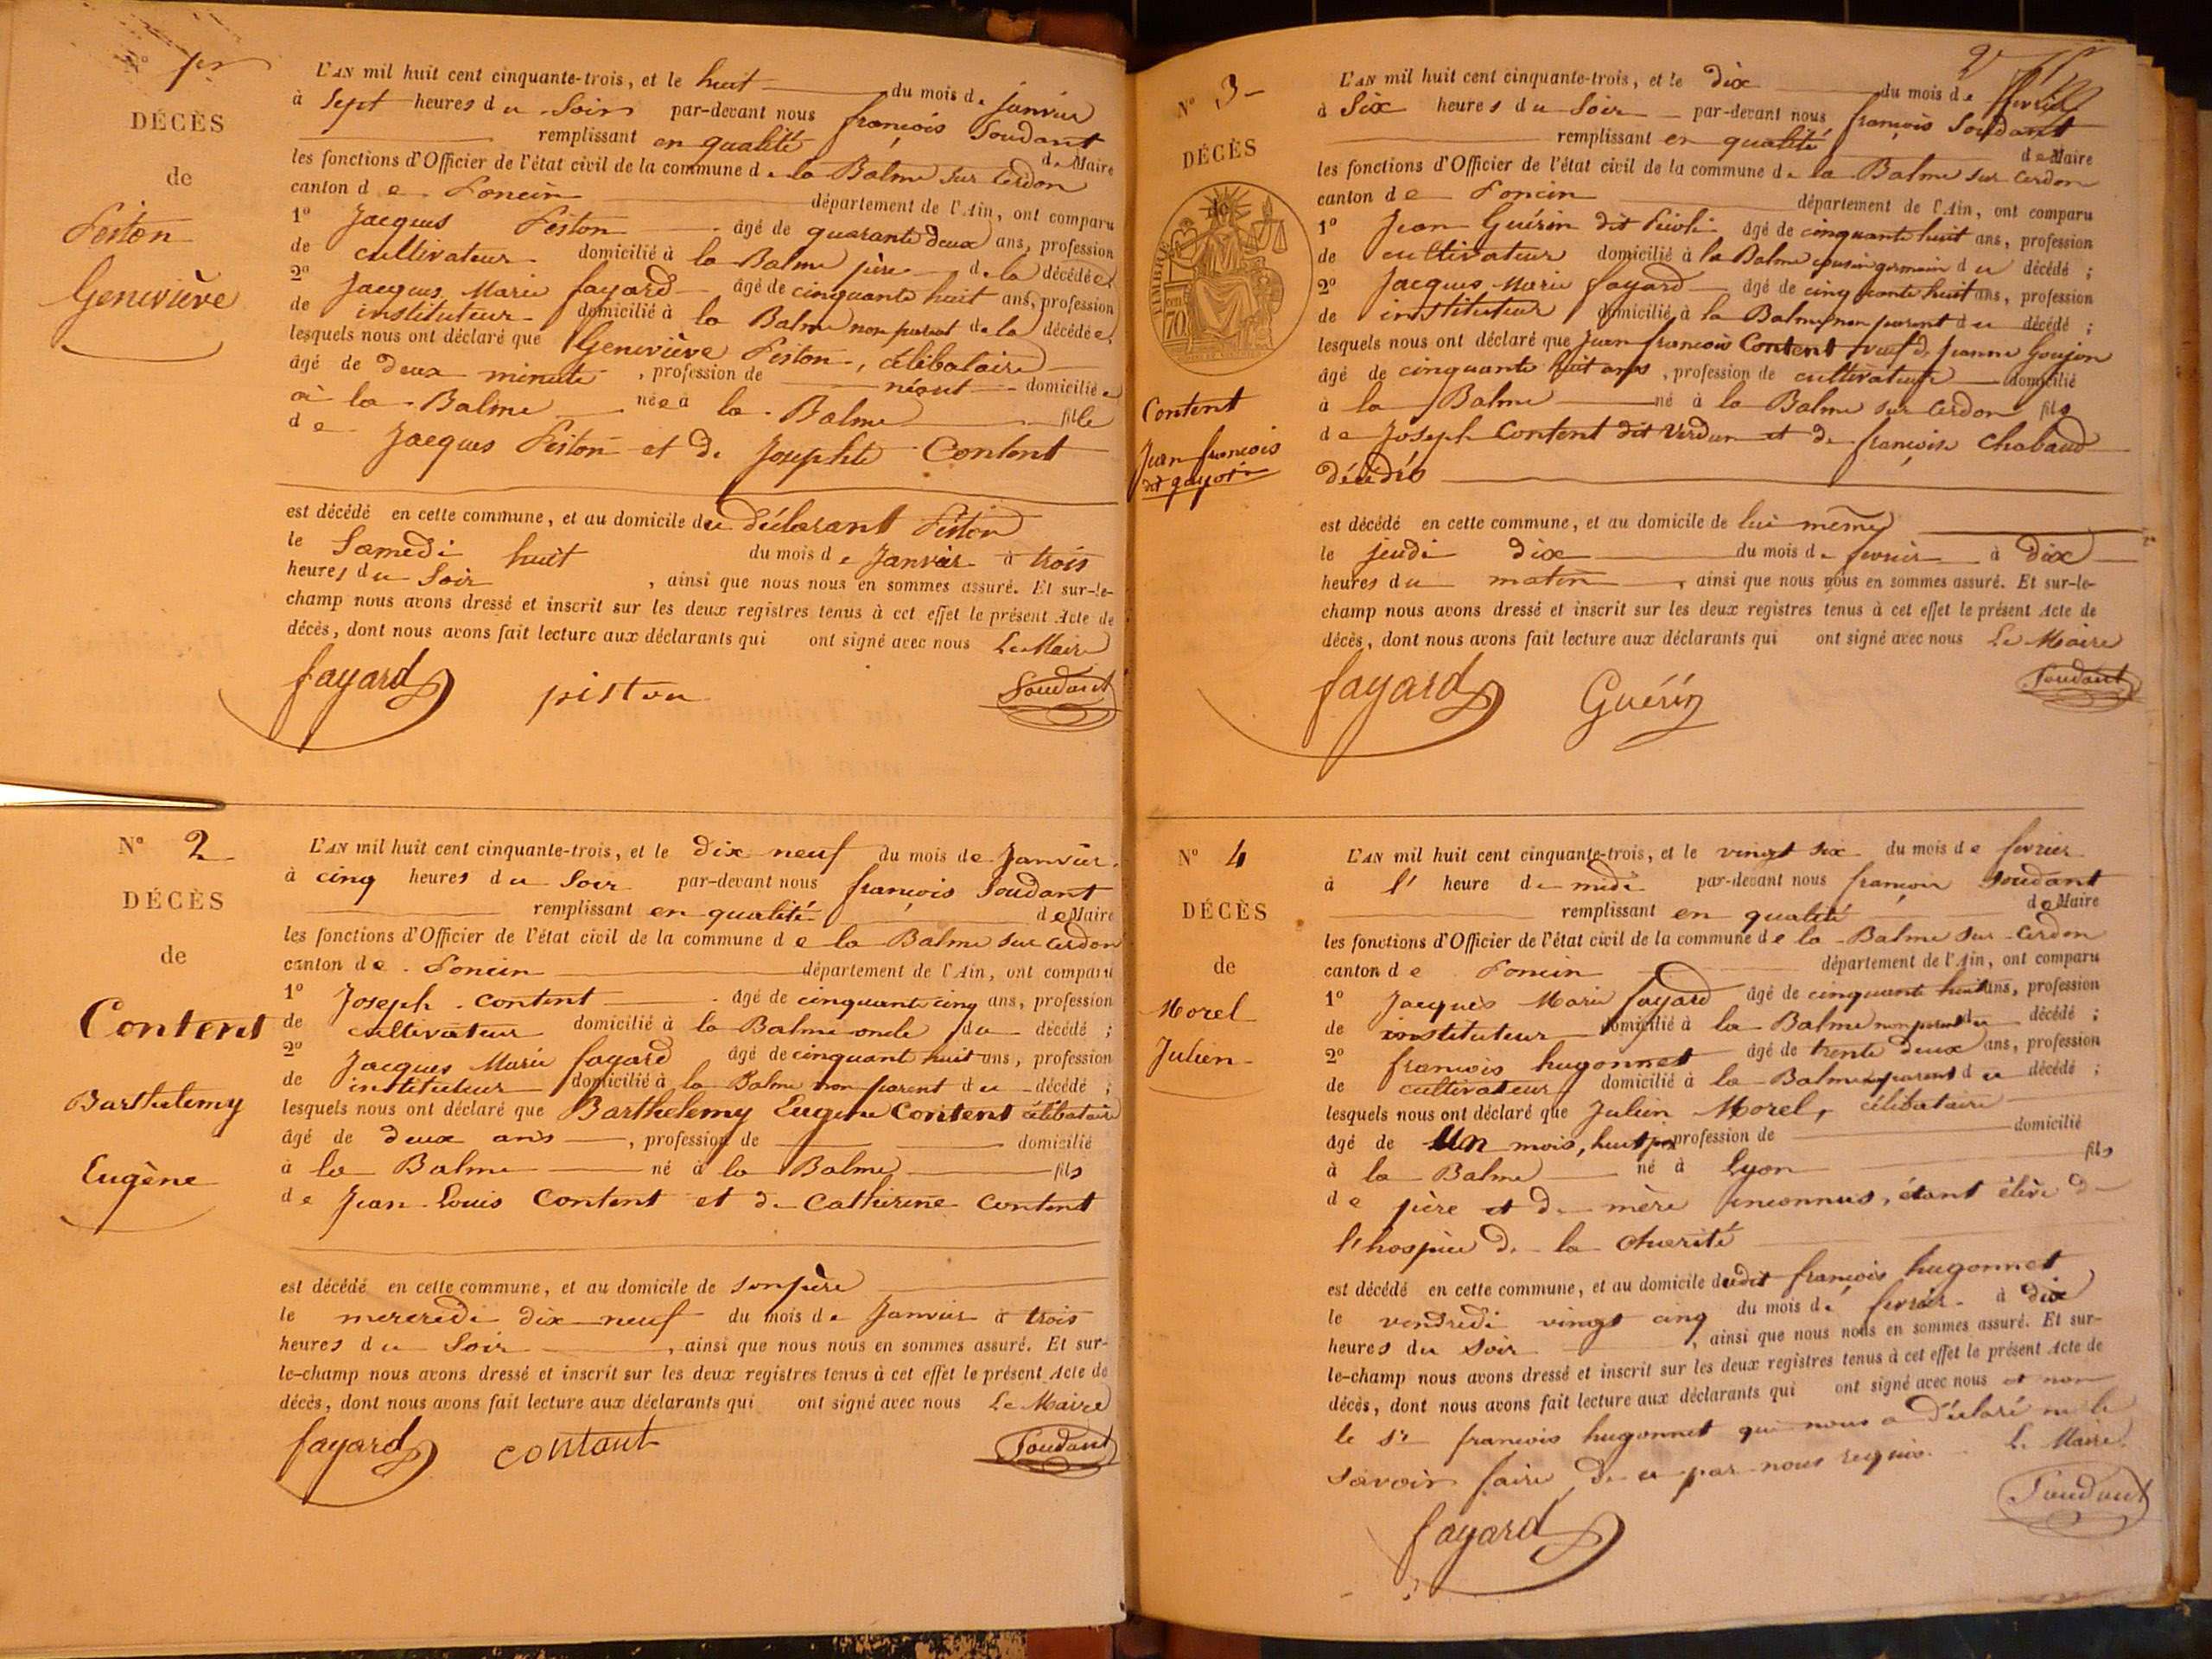 N° 1er
DÉCÈS
de
Piston
Geneviève
L'AN mil huit cent cinquante-trois, et le huit du mois de janvier
à Sept heures du Soir par-devant nous françois Soudant
remplissant en qualité de Maire
les fonctions d'Officier de l'état civil de la commune de la Balme sur Cerdon
canton de Poncin département de l'Ain, ont comparu
1° Jacques Piston âgé de quarante deux ans, profession
de cultivateur domicilié à la Balme père de la décédée;
2° Jacques Marie fayard âgé de cinquante huit ans, profession
de instituteur domicilié à la Balme non parent de la décédée;
lesquels nous ont déclaré que Geneviève Piston, célibataire
âgé de deux minute, profession de néant domiciliée
à la Balme née à la Balme fille
de Jacques Piston et de Josephte Content
est décédé en cette commune, et au domicile du déclarant Piston
le Samedi huit du mois de Janvier à trois
heures du Soir, ainsi que nous nous en sommes assuré. Et sur-le-
champ nous avons dressé et inscrit sur les deux registres tenus à cet effet le présent Acte de
décès, dont nous avons fait lecture aux déclarants qui ont signé avec nous Le Maire
fayard piston Soudant
N° 2
DÉCÈS
de
Content
Barthelemy
Eugène
L'AN mil huit cent cinquante-trois, et le dix neuf du mois de Janvier
à cinq heures du Soir par-devant nous françois Soudant
remplissant en qualité de Maire
les fonctions d'Officier de l'état civil de la commune de la Balme sur Cerdon
canton de Poncin département de l'Ain, ont comparu
1° Joseph Content âgé de cinquante cinq ans, profession
de cultivateur domicilié à la Balme oncle du décédé;
2° Jacques Marie fayard âgé de cinquant huit ans, profession
de instituteur domicilié à la Balme non parent du décédé;
lesquels nous ont déclaré que Barthelemy Eugene Content célibataire
âgé de deux ans, profession de domicilié
à la Balme né à la Balme fils
de Jean Louis Content et de Catherine Content
est décédé en cette commune, et au domicile de son père
le mercredi dix neuf du mois de Janvier à trois
heures du Soir, ainsi que nous nous en sommes assuré. Et sur-
le-champ nous avons dressé et inscrit sur les deux registres tenus à cet effet le présent Acte de
décès, dont nous avons fait lecture aux déclarants qui ont signé avec nous Le Maire
fayard contant Soudant
2
N° 3
DÉCÈS
de
TIMBRE
70
Content
Jean françois
L'AN mil huit cent cinquante-trois, et le dix du mois de fevrier
à Six heures du Soir par-devant nous françois Soudant
remplissant en qualité de Maire
les fonctions d'Officier de l'état civil de la commune de la Balme sur Cerdon
canton de Poncin département de l'Ain, ont comparu
1° Jean Guérin dit âgé de cinquante huit ans, profession
de cultivateur domicilié à la Balme cousin germain du décédé;
2° Jacques Marie fayard âgé de cinquante huit ans, profession
de instituteur domicilié à la Balme non parent du décédé;
lesquels nous ont déclaré que Jean françois Content veuf de Jeanne Goujon
âgé de cinquante huit ans, profession de cultivateur domicilié
à la Balme né à la Balme sur Cerdon fils
de Joseph Content dit Verdun et de françoise Chabaud
décédés
est décédé en cette commune, et au domicile de lui même
le jeudi dix du mois de fevrier à dix
heures du matin, ainsi que nous nous en sommes assuré. Et sur-le-
champ nous avons dressé et inscrit sur les deux registres tenus à cet effet le présent Acte de
décès, dont nous avons fait lecture aux déclarants qui ont signé avec nous Le Maire
fayard Guérin Soudant
N° 4
DÉCÈS
de
Morel
Julien
L'AN mil huit cent cinquante-trois, et le vingt six du mois de fevrier
à l' heure de midi par-devant nous françois Soudant
remplissant en qualité de Maire
les fonctions d'Officier de l'état civil de la commune de la Balme sur Cerdon
canton de Poncin département de l'Ain, ont comparu
1° Jacques Marie fayard âgé de cinquante huit ans, profession
de instituteur domicilié à la Balme non parent du décédé;
2° françois hugonnet âgé de trente deux ans, profession
de cultivateur domicilié à la Balme parent du décédé;
lesquels nous ont déclaré que Julien Morel, célibataire
âgé de Un mois, huit profession de domicilié
à la Balme né à Lyon fils
de père et de mère inconnus, étant élève de
l'hospice de la charité
est décédé en cette commune, et au domicile dudit françois hugonnet
le vendredi vingt cinq du mois de fevrier à dix
heures du soir, ainsi que nous nous en sommes assuré. Et sur-
le-champ nous avons dressé et inscrit sur les deux registres tenus à cet effet le présent Acte de
décès, dont nous avons fait lecture aux déclarants qui ont signé avec nous et non
le Sr françois hugonnet qui nous a déclaré ne le
savoir faire de ce par nous requis. Le Maire
fayard Soudant